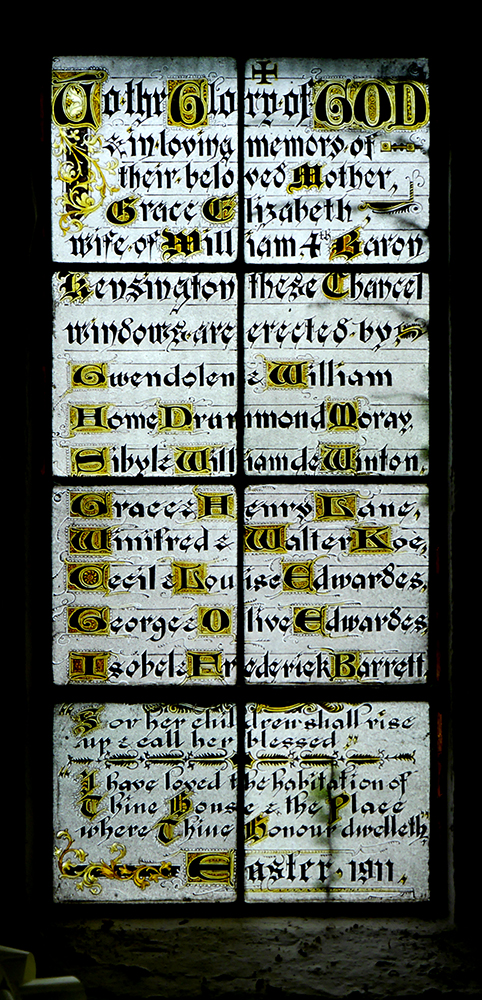 To the Glory of GOD
& in loving memory of
their beloved Mother,
Grace Elizabeth,
wife of William 4th Baron
Kensington these Chancel
windows are erected by
Gwendolen & William
Home Drummond Moray,
Sibyl & William de Winton,
Grace & Henry Lane,
Winifred & Walter Koe,
Cecil & Louise Edwardes,
George & Olive Edwardes,
Isobel & Frederick Barrett
"For her children shall rise
up & call her blessed."
"I have loved the habitation of
Thine House & the Place
where Thine Honour dwelleth"
Easter · 1911.